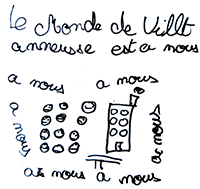 Le Monde de Villt
anneusse est a nous
a nous a nous
a nous
a nous
a nous a nous